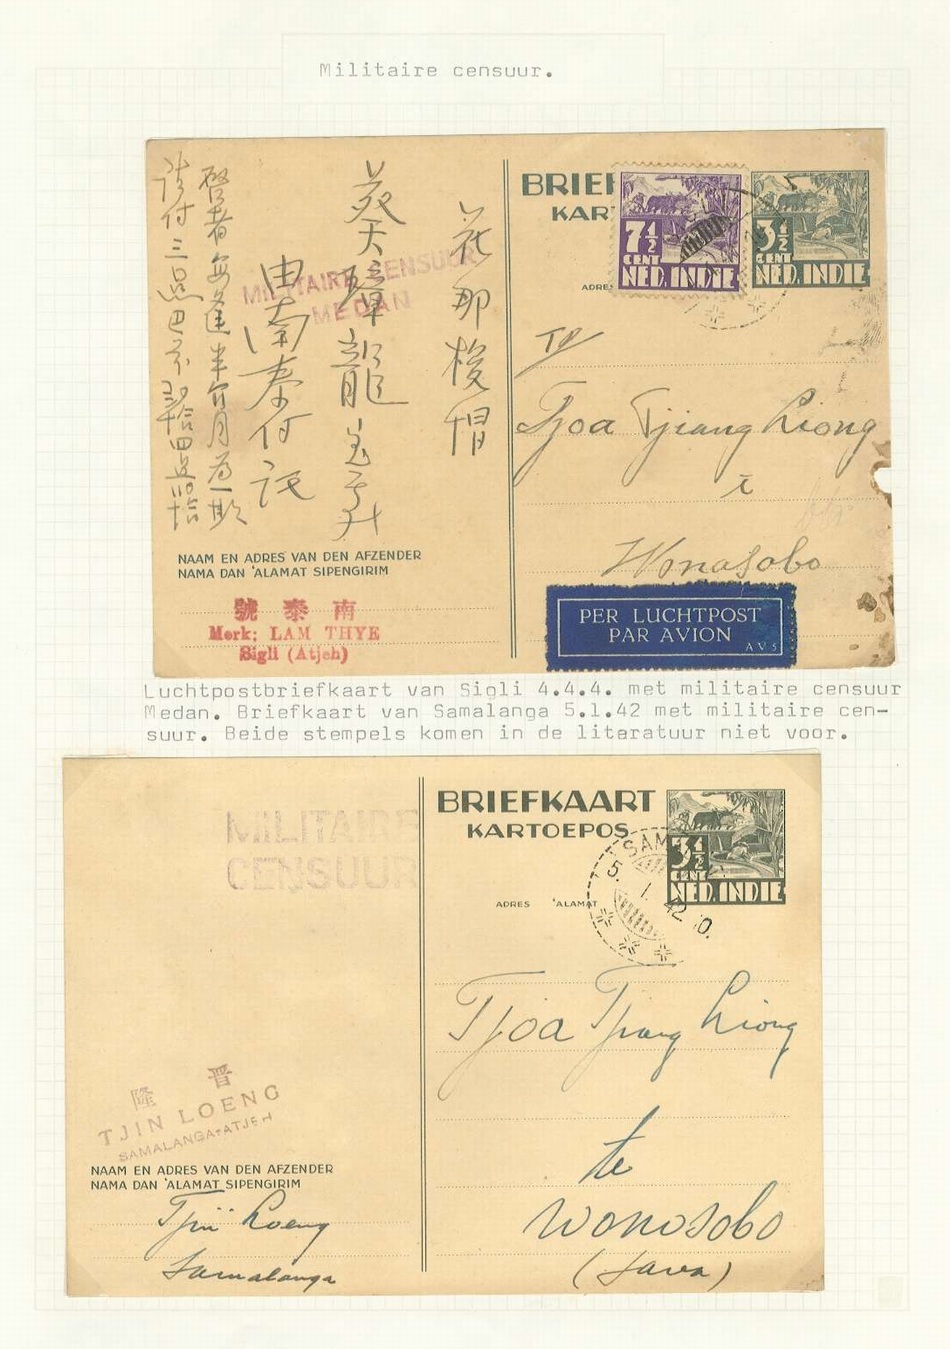 Militaire censuur.
BRIEF
KAR
7½
CENT
NED. INDIE
3½
CENT
NED. INDIE
ADRE
花那梭帽
蔡天璋龍
由南泰付
MILITAIRE CENSUUR
MEDAN
To
Tjoa Tjiang Liong
Wonosobo
NAAM EN ADRES VAN DEN AFZENDER
NAMA DAN 'ALAMAT SIPENGIRIM
號 泰 南
Merk; LAM THYE
Sigli (Atjeh)
PER LUCHTPOST
PAR AVION
AV5
Luchtpostbriefkaart van Sigli 4.4.4. met militaire censuur
Medan. Briefkaart van Samalanga 5.1.42 met militaire cen-
suur. Beide stempels komen in de literatuur niet voor.
MILITAIRE
CENSUUR
BRIEFKAART
KARTOEPOS
3½
CENT
NED. INDIE
SAM
5. 1. 42 10.
ADRES 'ALAMAT
Tjoa Tjiang Liong
te
Wonosobo
(Java)
隆 晋
TJIN LOENG
SAMALANGA-ATJEH
NAAM EN ADRES VAN DEN AFZENDER
NAMA DAN 'ALAMAT SIPENGIRIM
Tjin Loeng
Samalanga